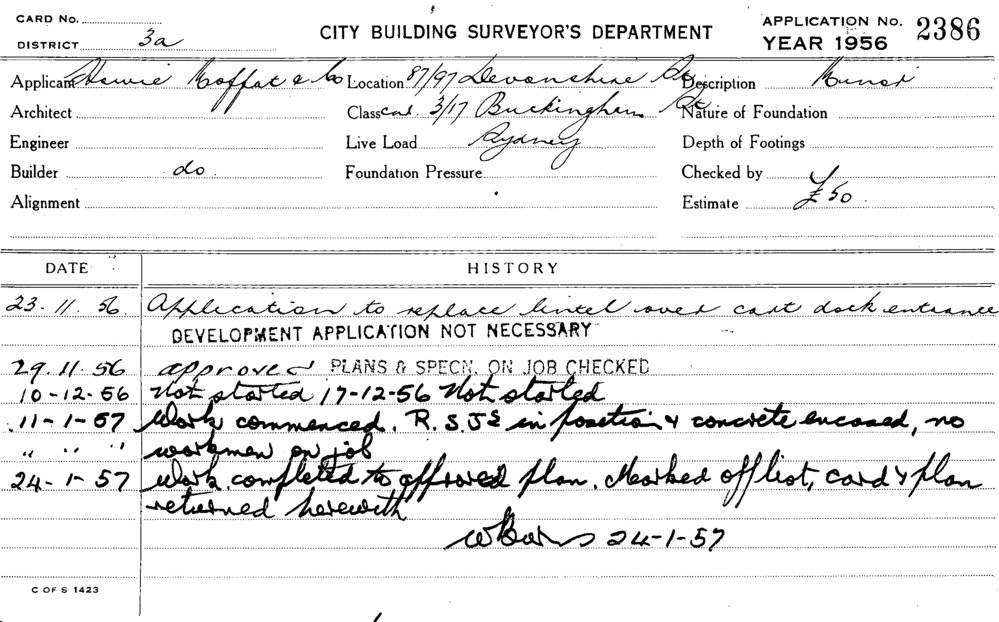 CARD No.
DISTRICT 3a
CITY BUILDING SURVEYOR'S DEPARTMENT
APPLICATION No. 2386
YEAR 1956
Applicant Howie Moffat & Co Location 87/97 Devonshire St Description Minor
Architect Class cnr. 3/17 Buckingham St Nature of Foundation
Engineer Live Load Sydney Depth of Footings
Builder do. Foundation Pressure Checked by
Alignment Estimate £50
DATE HISTORY
23. 11. 56. Application to replace lintel over cart dock entrance
DEVELOPMENT APPLICATION NOT NECESSARY
29. 11. 56 approved PLANS & SPECN. ON JOB CHECKED
10-12-56 Not started 17-12-56 Not started
11-1-57 Work commenced. R.S.Js in position & concrete encased, no
" " " workmen on job
24-1-57 Work completed to approved plan. Marked off list, card & plan
returned herewith
24-1-57
C OF S 1423